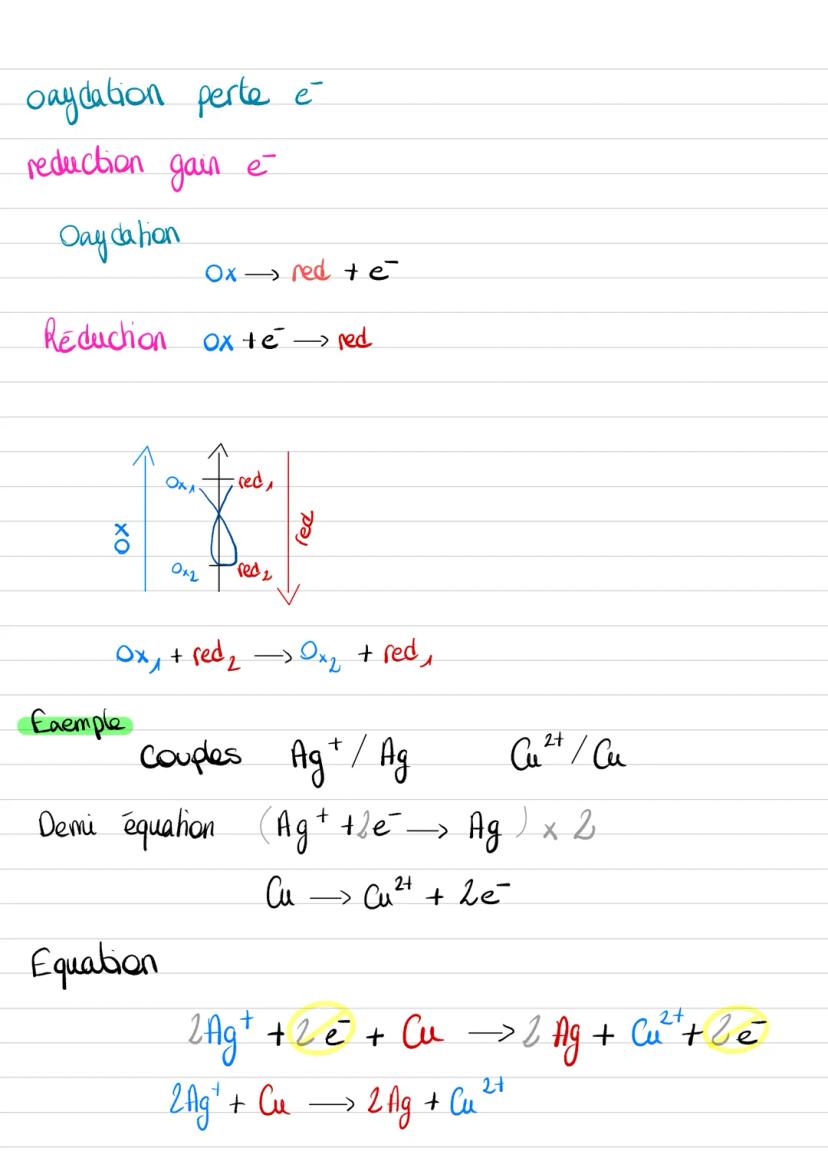 oxydation perte e⁻
reduction gain e⁻
Oxydation
Ox → red + e⁻
Réduction Ox + e⁻ → red
Ox₁ red₁
Ox
red
Ox₂ red₂
Ox₁ + red₂ → Ox₂ + red₁
Exemple
couples Ag⁺ / Ag Cu²⁺ / Cu
Demi équation (Ag⁺ + 2e⁻ → Ag) × 2
Cu → Cu²⁺ + 2e⁻
Equation
2Ag⁺ + 2e⁻ + Cu → 2 Ag + Cu²⁺ + 2e⁻
2Ag⁺ + Cu → 2Ag + Cu²⁺